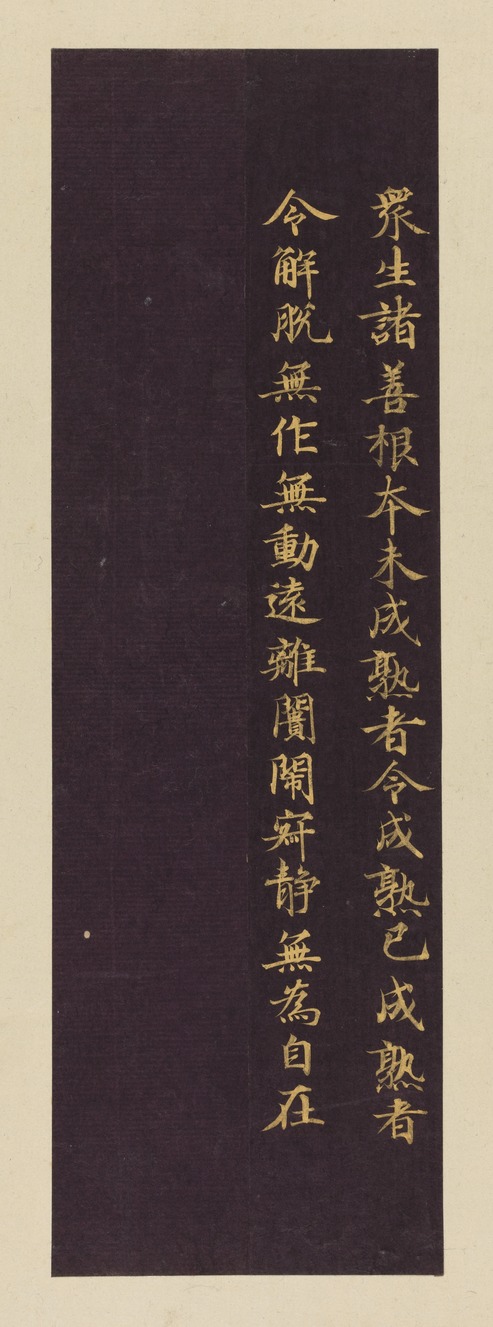 眾生諸善根本未成熟者令成熟已成熟者
令解脫無作無動遠離闠閙㝥靜無為自在